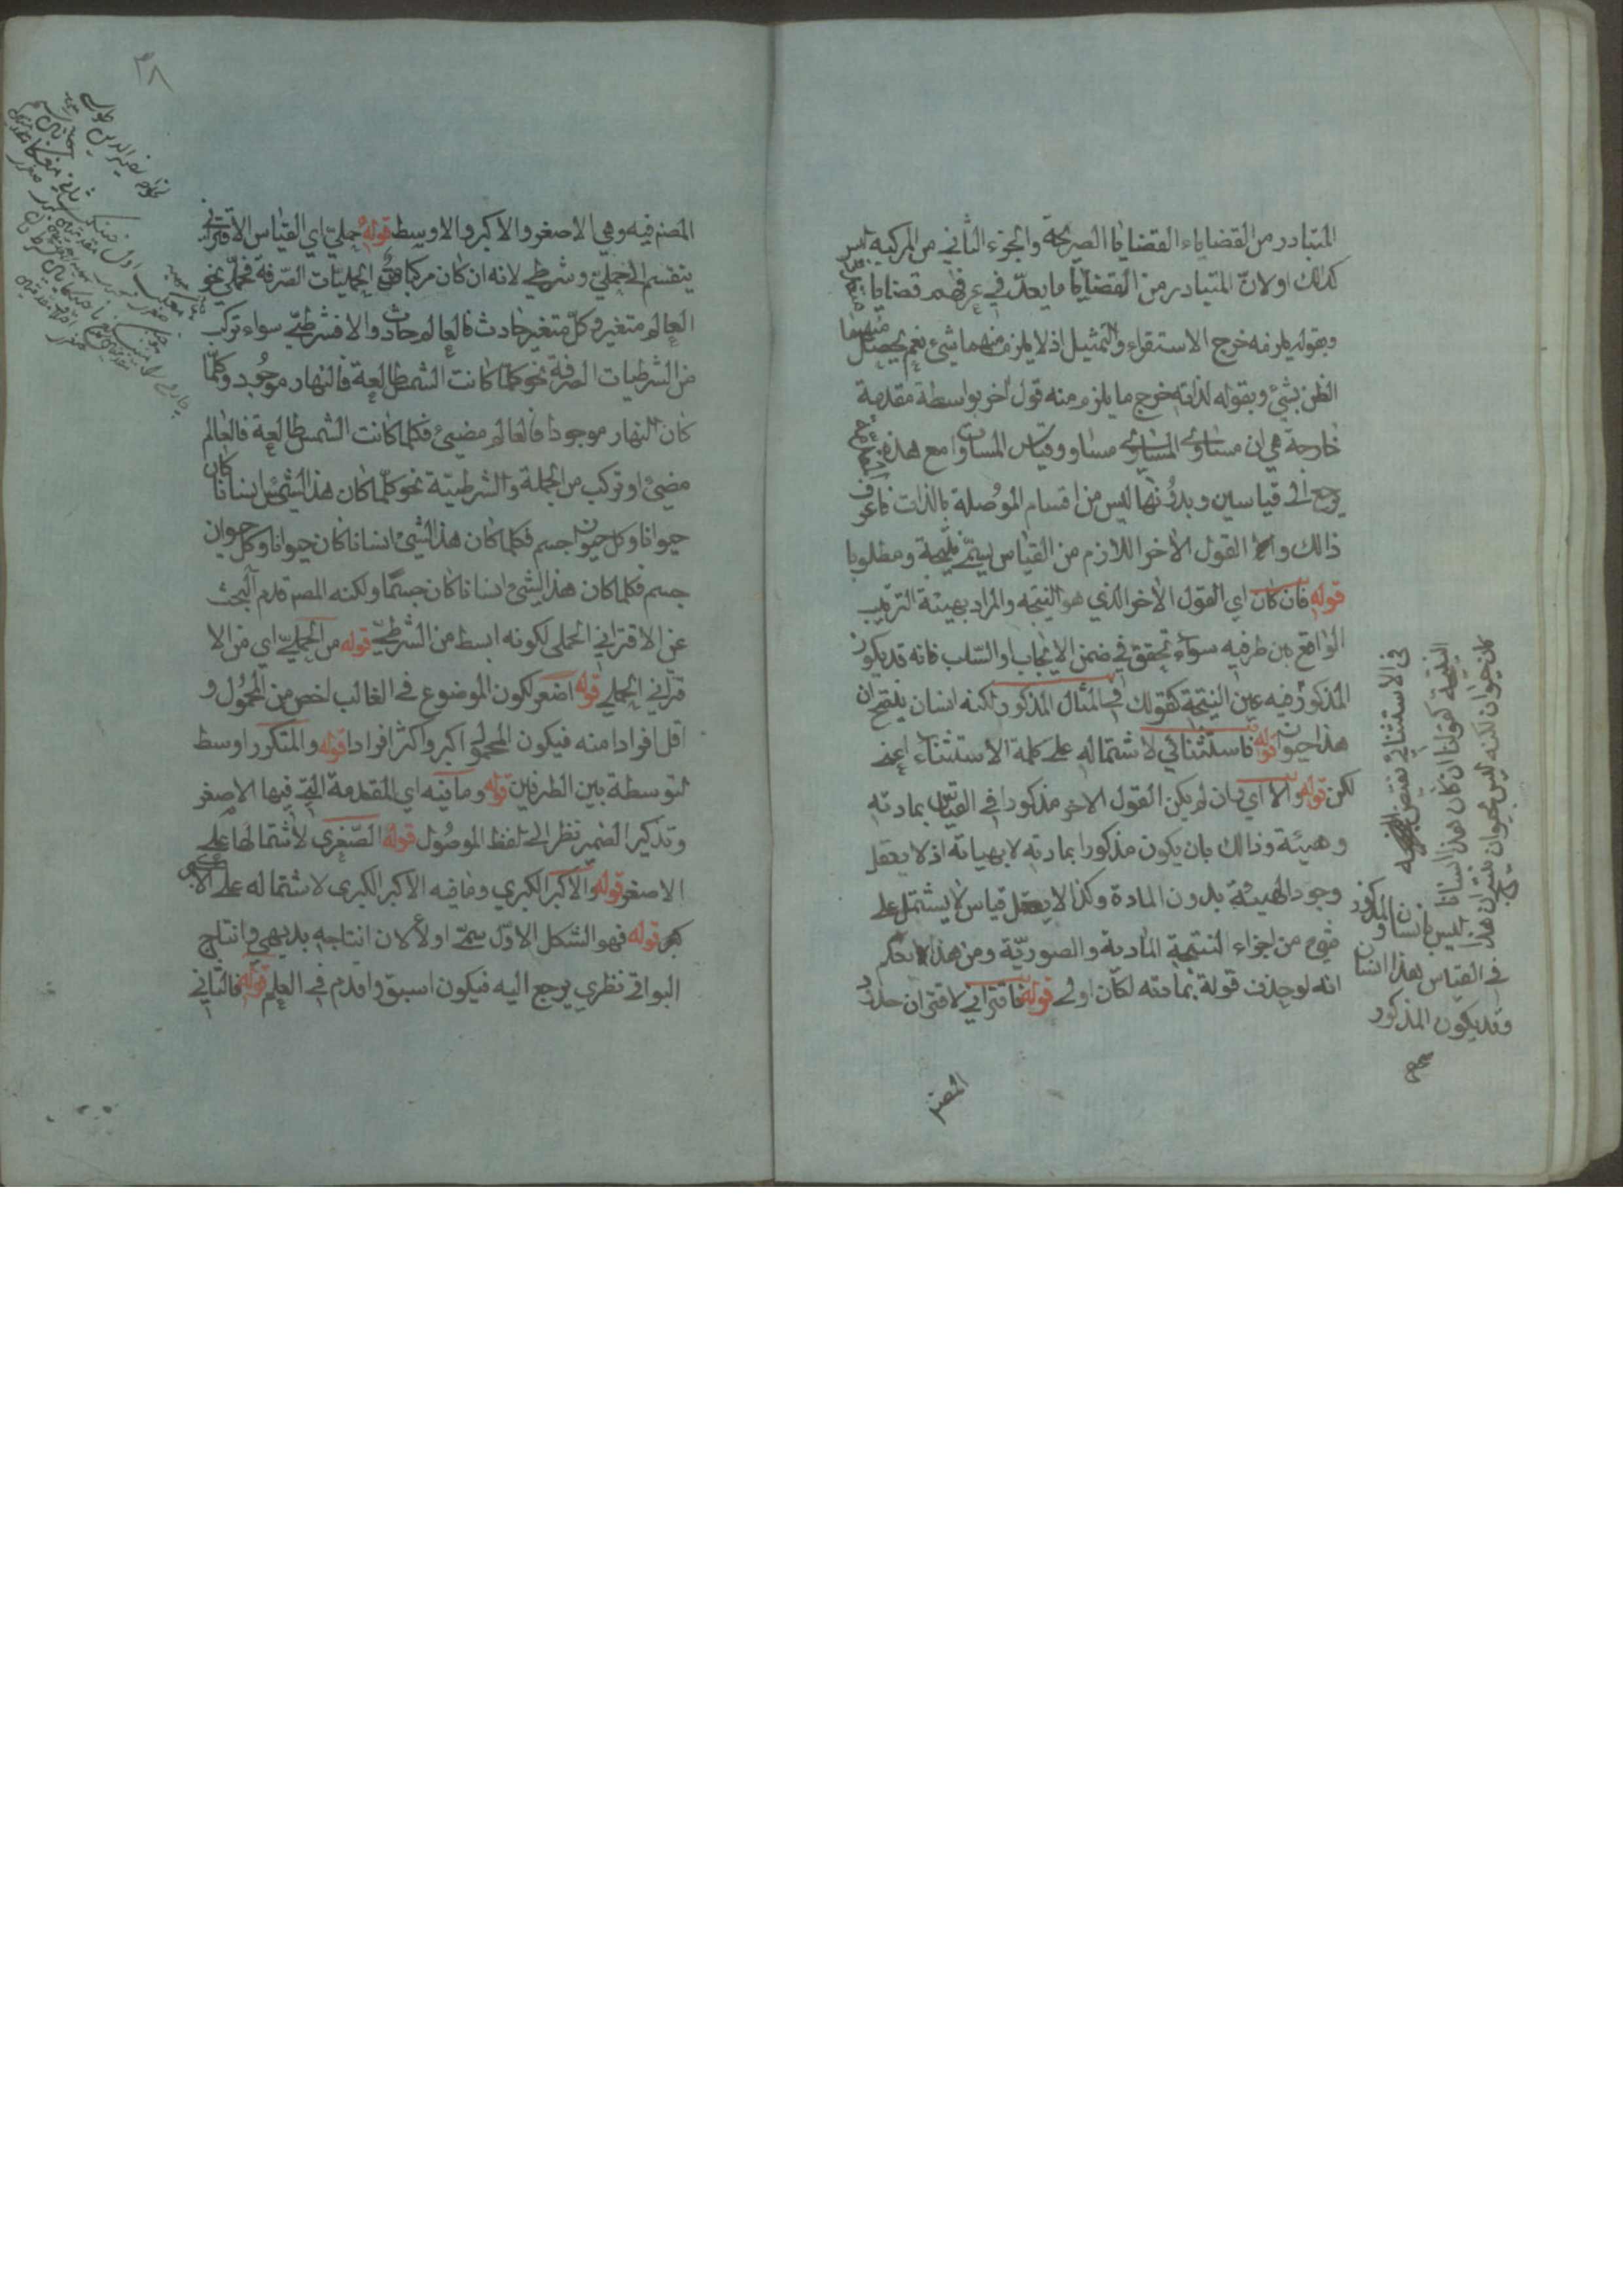 المتبادر من القضاياء القضايا الصريحة والجزء الثاني من المركبة ليس
كذلك اولان المتبادر من القضايا ما يعدّ في عرفهم قضايا
وبقوله يلزمه خرج الاستقراء والتمثيل اذ لا يلزم منهما شيء نعم يحصل منهما
الظن بشئ وبقوله لذاته خرج ما يلزم منه قول اخر بواسطة مقدمة
خارجة هي ان مساوي المساوي مساو وقياس المساوات مع هذه
يرجع الى قياسين وبدونها ليس من اقسام الموصلة بالذات فاعرف
ذالك والقول الاخر اللازم من القياس يسمّى نتيجة ومطلوبا
قوله فان كان اي القول الاخر الذي هو النتيجه والمراد بهيئة الترتيب
الواقع بين طرفيه سواء تحقق في ضمن الايجاب او السّلب فانه قد يكون
المذكور فيه عين النتيجة كقولك في المثال المذكور لكنه انسان ينتج ان
هذا حيوان قوله فاستثنائي لاشتماله على كلمة الاستثناء اعني
لكن قوله والا اي وان لم يكن القول الاخر مذكورا في القياس بمادته
وهيئة وذالك بان يكون مذكورا بمادته لا بهياته اذ لا يعقل
وجود الهيئة بدون المادة وكذا لا يعقل قياس لا يشتمل على
شيء من اجزاء النتيجة المادية والصوريّة ومن هذا يعلم
انه لو حذف قوله بمادته لكان اولى قوله فاقتراني لاقتران حدود
المصنف
في الاستثنائي نقيض النتيجه
النتيجة كقولنا ان كان هذا انسانا
كان حيوان لكنه ليس بحيوان ينتج ان هذا
ليس بانسان والمذكور
في القياس هذا انسان
وقد يكون المذكور
صح
٣٨
المصنف فيه وهي الاصغر والاكبر والاوسط قوله حملي اي القياس الاقتراني
ينقسم الى حملي وشرطي لانه ان كان مركبا من الحمليّات الصّرفة فحملي نحو
العالم متغير وكلّ متغير حادث فالعالم حادث والا فشرطيّ سواء تركب
من الشرطيات الصرفة نحو كلما كانت الشمس طالعة فالنهار موجود وكلّما
كان النهار موجودا فالعالم مضيئ فكلما كانت الشمس طالعة فالعالم
مضيئ او تركب من الحملية والشرطيّة نحو كلّما كان هذا الشيئ انسانا كان
حيوانا وكل حيوان جسم فكلما كان هذا الشيئ انسانا كان حيوانا وكل حيوان
جسم فكلما كان هذا الشيئ انسانا كان جسمًا ولكنه المصنف قدم البحث
عن الاقتراني الحملي لكونه ابسط من الشرطيّ قوله من الحمليّ اي من الا
قتراني الحملي قوله اصغر لكون الموضوع في الغالب اخص من المحمول و
اقل افرادا منه فيكون المحمول اكبر واكثر افرادا قوله والمتكرر اوسط
لتوسطة بين الطرفين قوله وما فيه اي المقدمة التي فيها الاصغر
وتذكير الضمير نظر الى لفظ الموصول قوله الصّغرى لاشتمالها على
الاصغر قوله والاكبر الكبري وما فيه الاكبر الكبرى لاشتماله على الا
كبر قوله فهو الشكل الاوّل سمّي اولا لان انتاجه بديهي وانتاج
البواقي نظري يرجع اليه فيكون اسبق واقدم في العلم قوله فالثاني